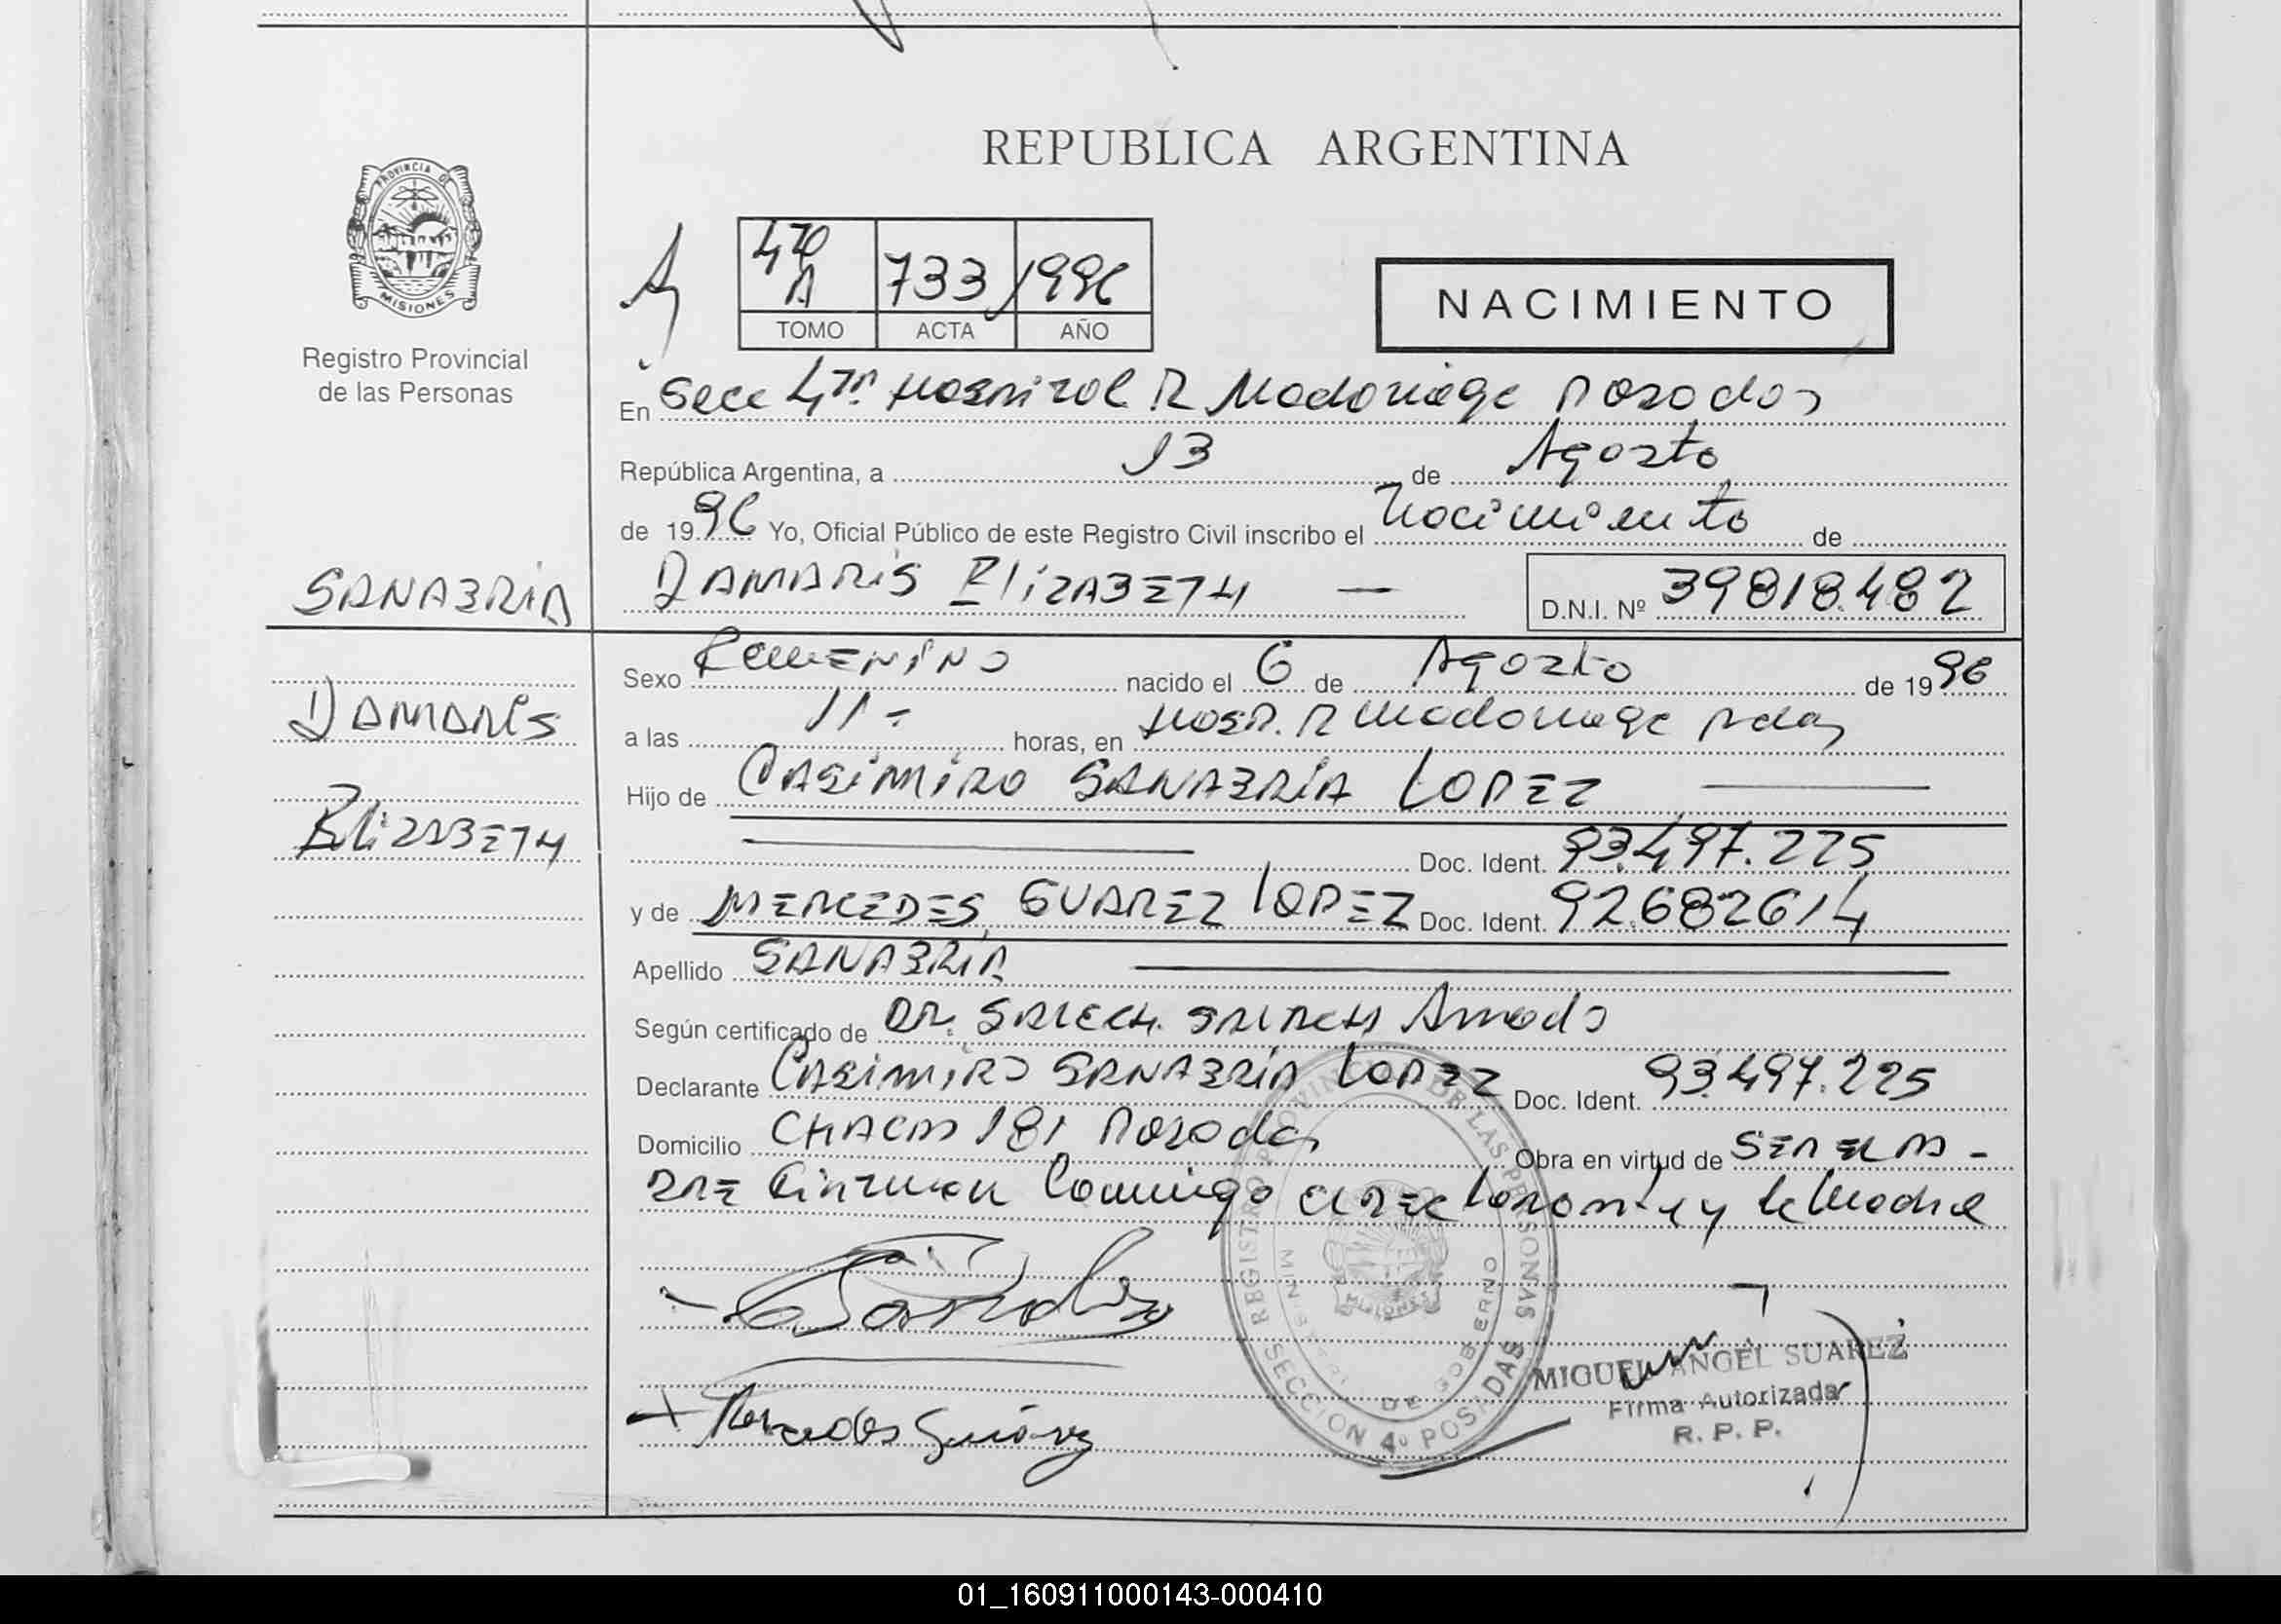 REPUBLICA ARGENTINA
PROVINCIA DE
MISIONES
Registro Provincial
de las Personas
4ta A 733 1996
TOMO ACTA AÑO
NACIMIENTO
En Secc 4ta. Hospital R Madariaga Posadas
República Argentina, a 13 de Agosto
de 1996 Yo, Oficial Público de este Registro Civil inscribo el Nacimiento de
SANABRIA
DAMARIS ELIZABETH — D.N.I. Nº 39818.482
DAMARIS
ELIZABETH
Sexo Femenino nacido el 6 de Agosto de 1996
a las 11- horas, en Hosp. R Madariaga Pdas
Hijo de CASIMIRO SANABRIA LOPEZ
Doc. Ident. 93.497.225
y de MERCEDES SUAREZ LOPEZ Doc. Ident. 92.682614
Apellido SANABRIA
Según certificado de DR. Amado
Declarante CASIMIRO SANABRIA LOPEZ Doc. Ident. 93.497.225
Domicilio CHACRA 181 Posadas Obra en virtud de
y la Madre
Mercedes Suárez
REGISTRO PROVINCIAL DE LAS PERSONAS
MINISTERIO DE GOBIERNO
MISIONES
SECCION 4º POSADAS
MIGUEL ANGEL SUAREZ
Firma Autorizada
R. P. P.
01_160911000143-000410